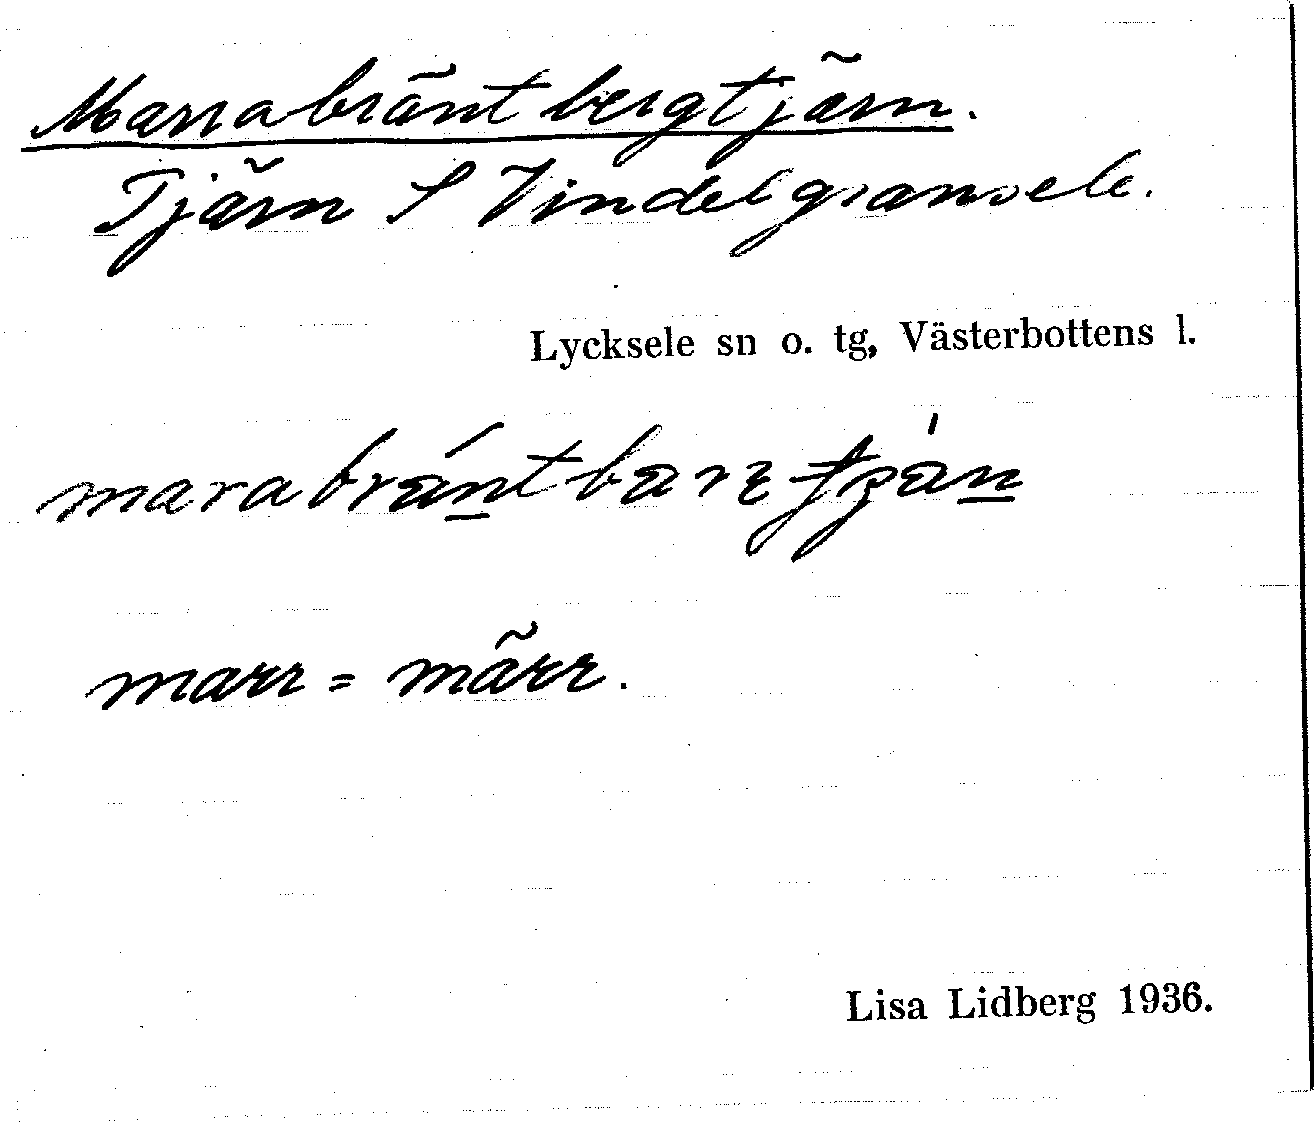 Marrabräntbergtjärn.
Tjärn S Vindelgransele.
Lycksele sn o. tg, Västerbottens l.
marr = märr.
Lisa Lidberg 1936.